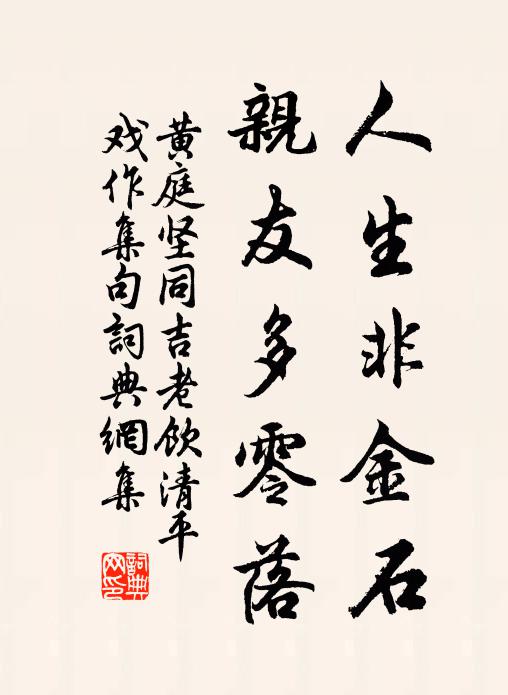 人生非金石
親友多零落
黄庭坚同吉老飲清平
戏作集句詞典網集
詞典網印